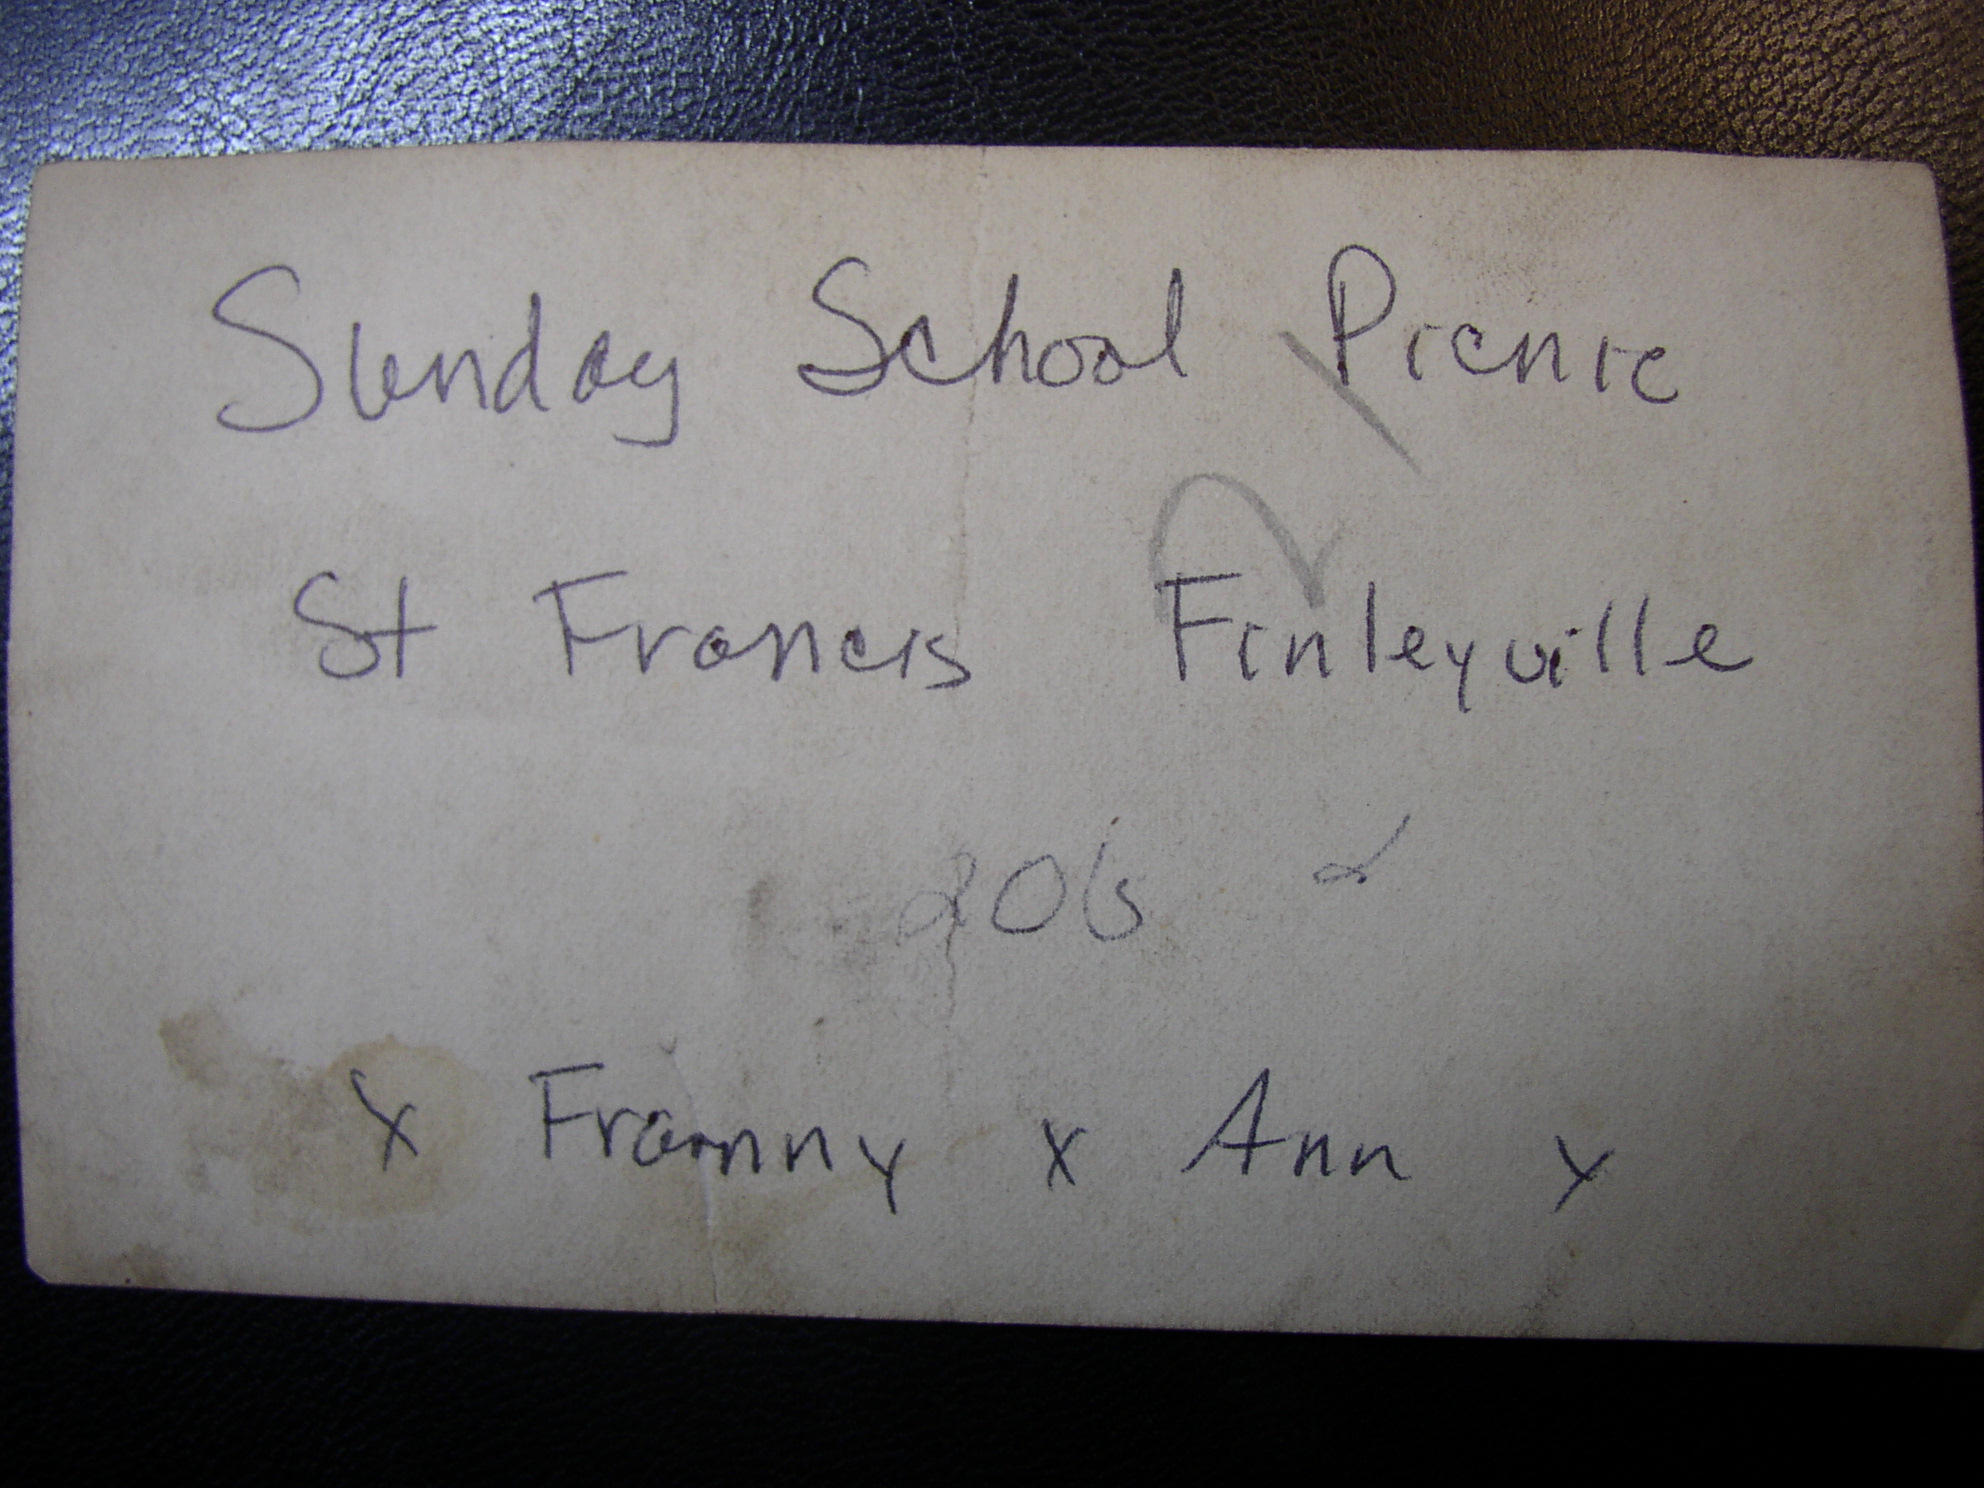 Sunday School Picnic
St Francis Finleyville
20's
x Franny x Ann x